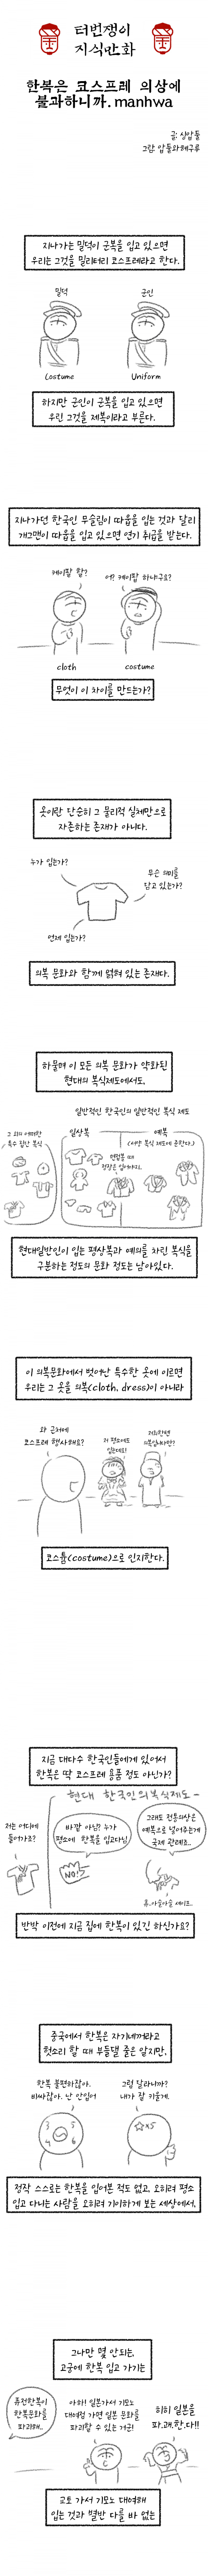 터번쟁이
지식만화
한복은 코스프레 의상에
불과하니까.manhwa
글: 싱암들
그림: 암들와해구류
지나가는 밀덕이 군복을 입고 있으면
우리는 그것을 밀리터리 코스프레라고 한다.
밀덕
군인
Costume
Uniform
하지만 군인이 군복을 입고 있으면
우린 그것을 제복이라고 부른다.
지나가던 한국인 무슬림이 따웁을 입는 것과 달리
개그맨이 따웁을 입고 있으면 연기 취급을 받는다.
케이팝 함?
에? 케이팝 하냐구요?
cloth
costume
무엇이 이 차이를 만드는가?
옷이란 단순히 그 물리적 실체만으로
자존하는 존재가 아니다.
누가 입는가?
무슨 의미를
담고 있는가?
언제 입는가?
의복 문화와 함께 얽혀 있는 존재다.
하물며 이 모든 의복 문화가 약화된
현대의 복식제도에서도,
일반적인 한국인의 일반적인 복식 제도
그 외의 어떠한
특수 집단 복식
일상복
예복
(서양 복식 제도에 준한다.)
면접볼 때
정장은 입어야지..
현대일반인이 입는 평상복과 예의를 차린 복식을
구분하는 정도의 문화 정도는 남아있다.
이 의복문화에서 벗어난 특수한 옷에 이르면
우리는 그 옷을 의복(cloth, dress)이 아니라
와 근처에
코스프레 행사해요?
저 평소에도
입는데요!
저희한텐
의복입니다만?
코스튬(costume)으로 인지한다.
지금 대다수 한국인들에게 있어서
한복은 딱 코스프레 용품 정도 아닌가?
현대 한국인의 복식제도
저는 어디에
들어가죠?
바깥 아님? 누가
평소에 한복을 입고다님
NO!
그래도 전통의상은
예복으로 넣어주는게
국제 관례죠..
휴..아슬아슬 세이프..
반박 이전에 지금 집에 한복이 있긴 하신가요?
중국에서 한복은 자기네꺼라고
헛소리 할 때 부들댈 줄은 알지만,
한복 불편하잖아.
비싸잖아. 난 안입어
그럼 달라니까?
내가 잘 키울게.
정작 스스로는 한복을 입어본 적도 없고, 오히려 평소
입고 다니는 사람을 오히려 기이하게 보는 세상에서,
그나만 몇 안되는,
고궁에 한복 입고 가기는
퓨전한복이
한복문화를
파괴해..
아하! 일본가서 기모노
대여점 가면 일본 문화를
파괴할 수 있는 거군!
히히 일본을
파.괘.한.다!!
교토 가서 기모노 대여해
입는 것과 별반 다를 바 없는